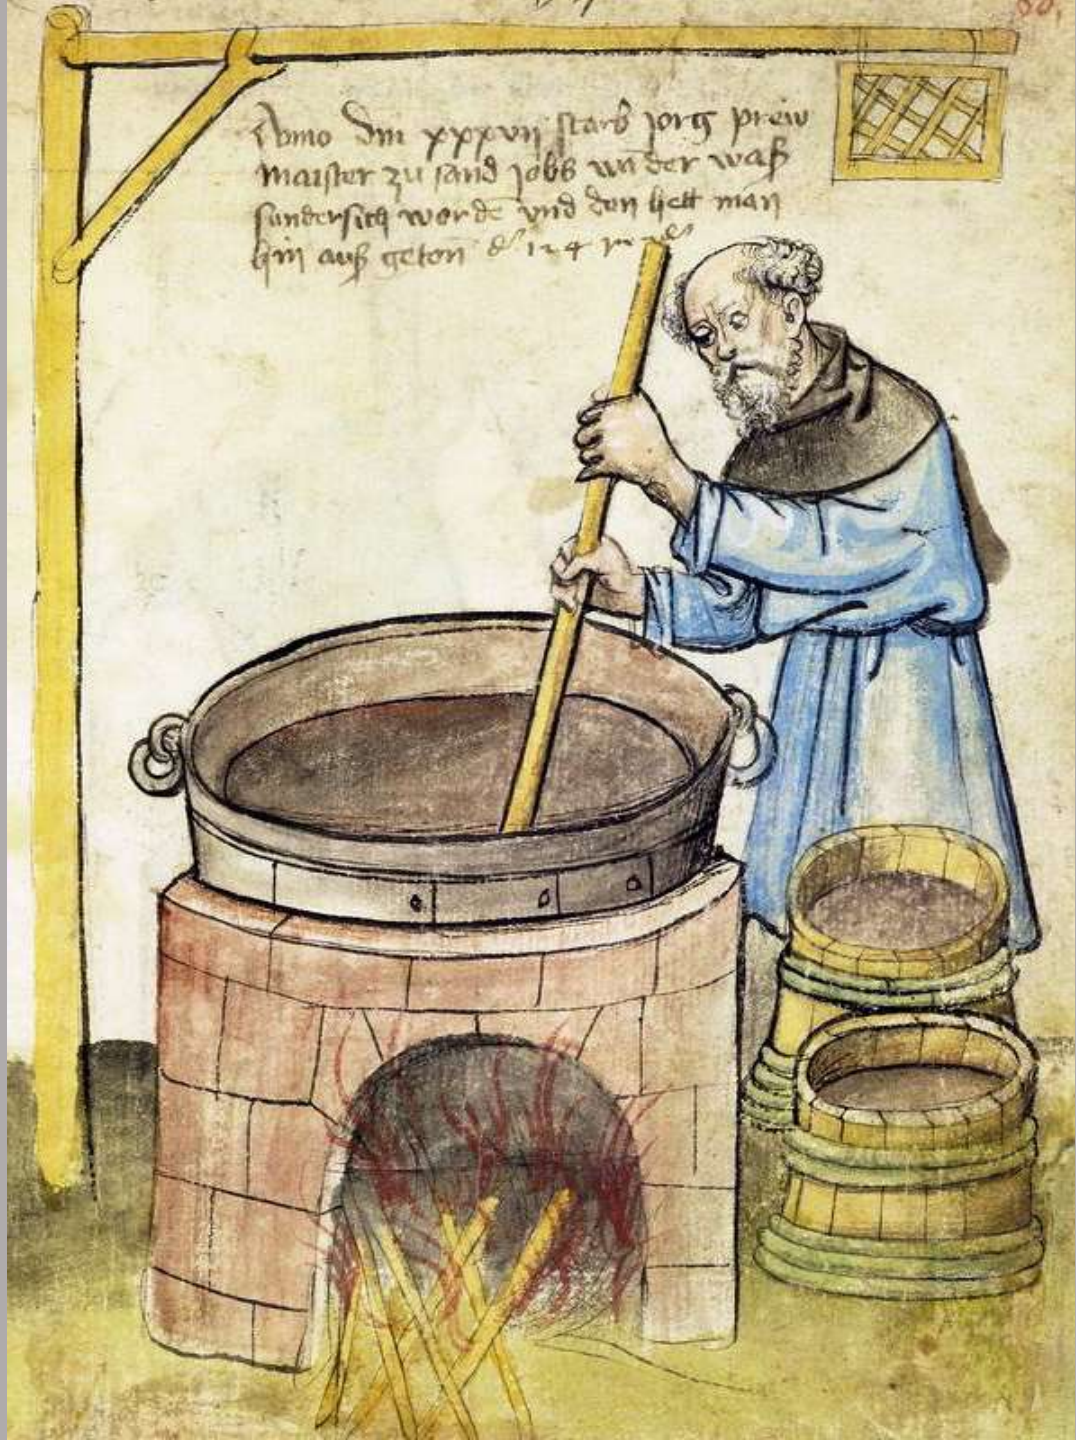 Anno dm̄ xxxvij starb jorg prew
maister zu sand jobs wā der waß
sundersich wordē vnd den hett man
hin auß getoñ d' 124
80.